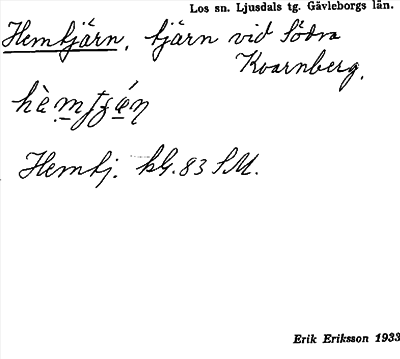 Los sn. Ljusdals tg. Gävleborgs län.
Hemtjärn, tjärn vid Södra
Kvarnberg.
Hemtj. kbl. 83 SM.
Erik Eriksson 1933